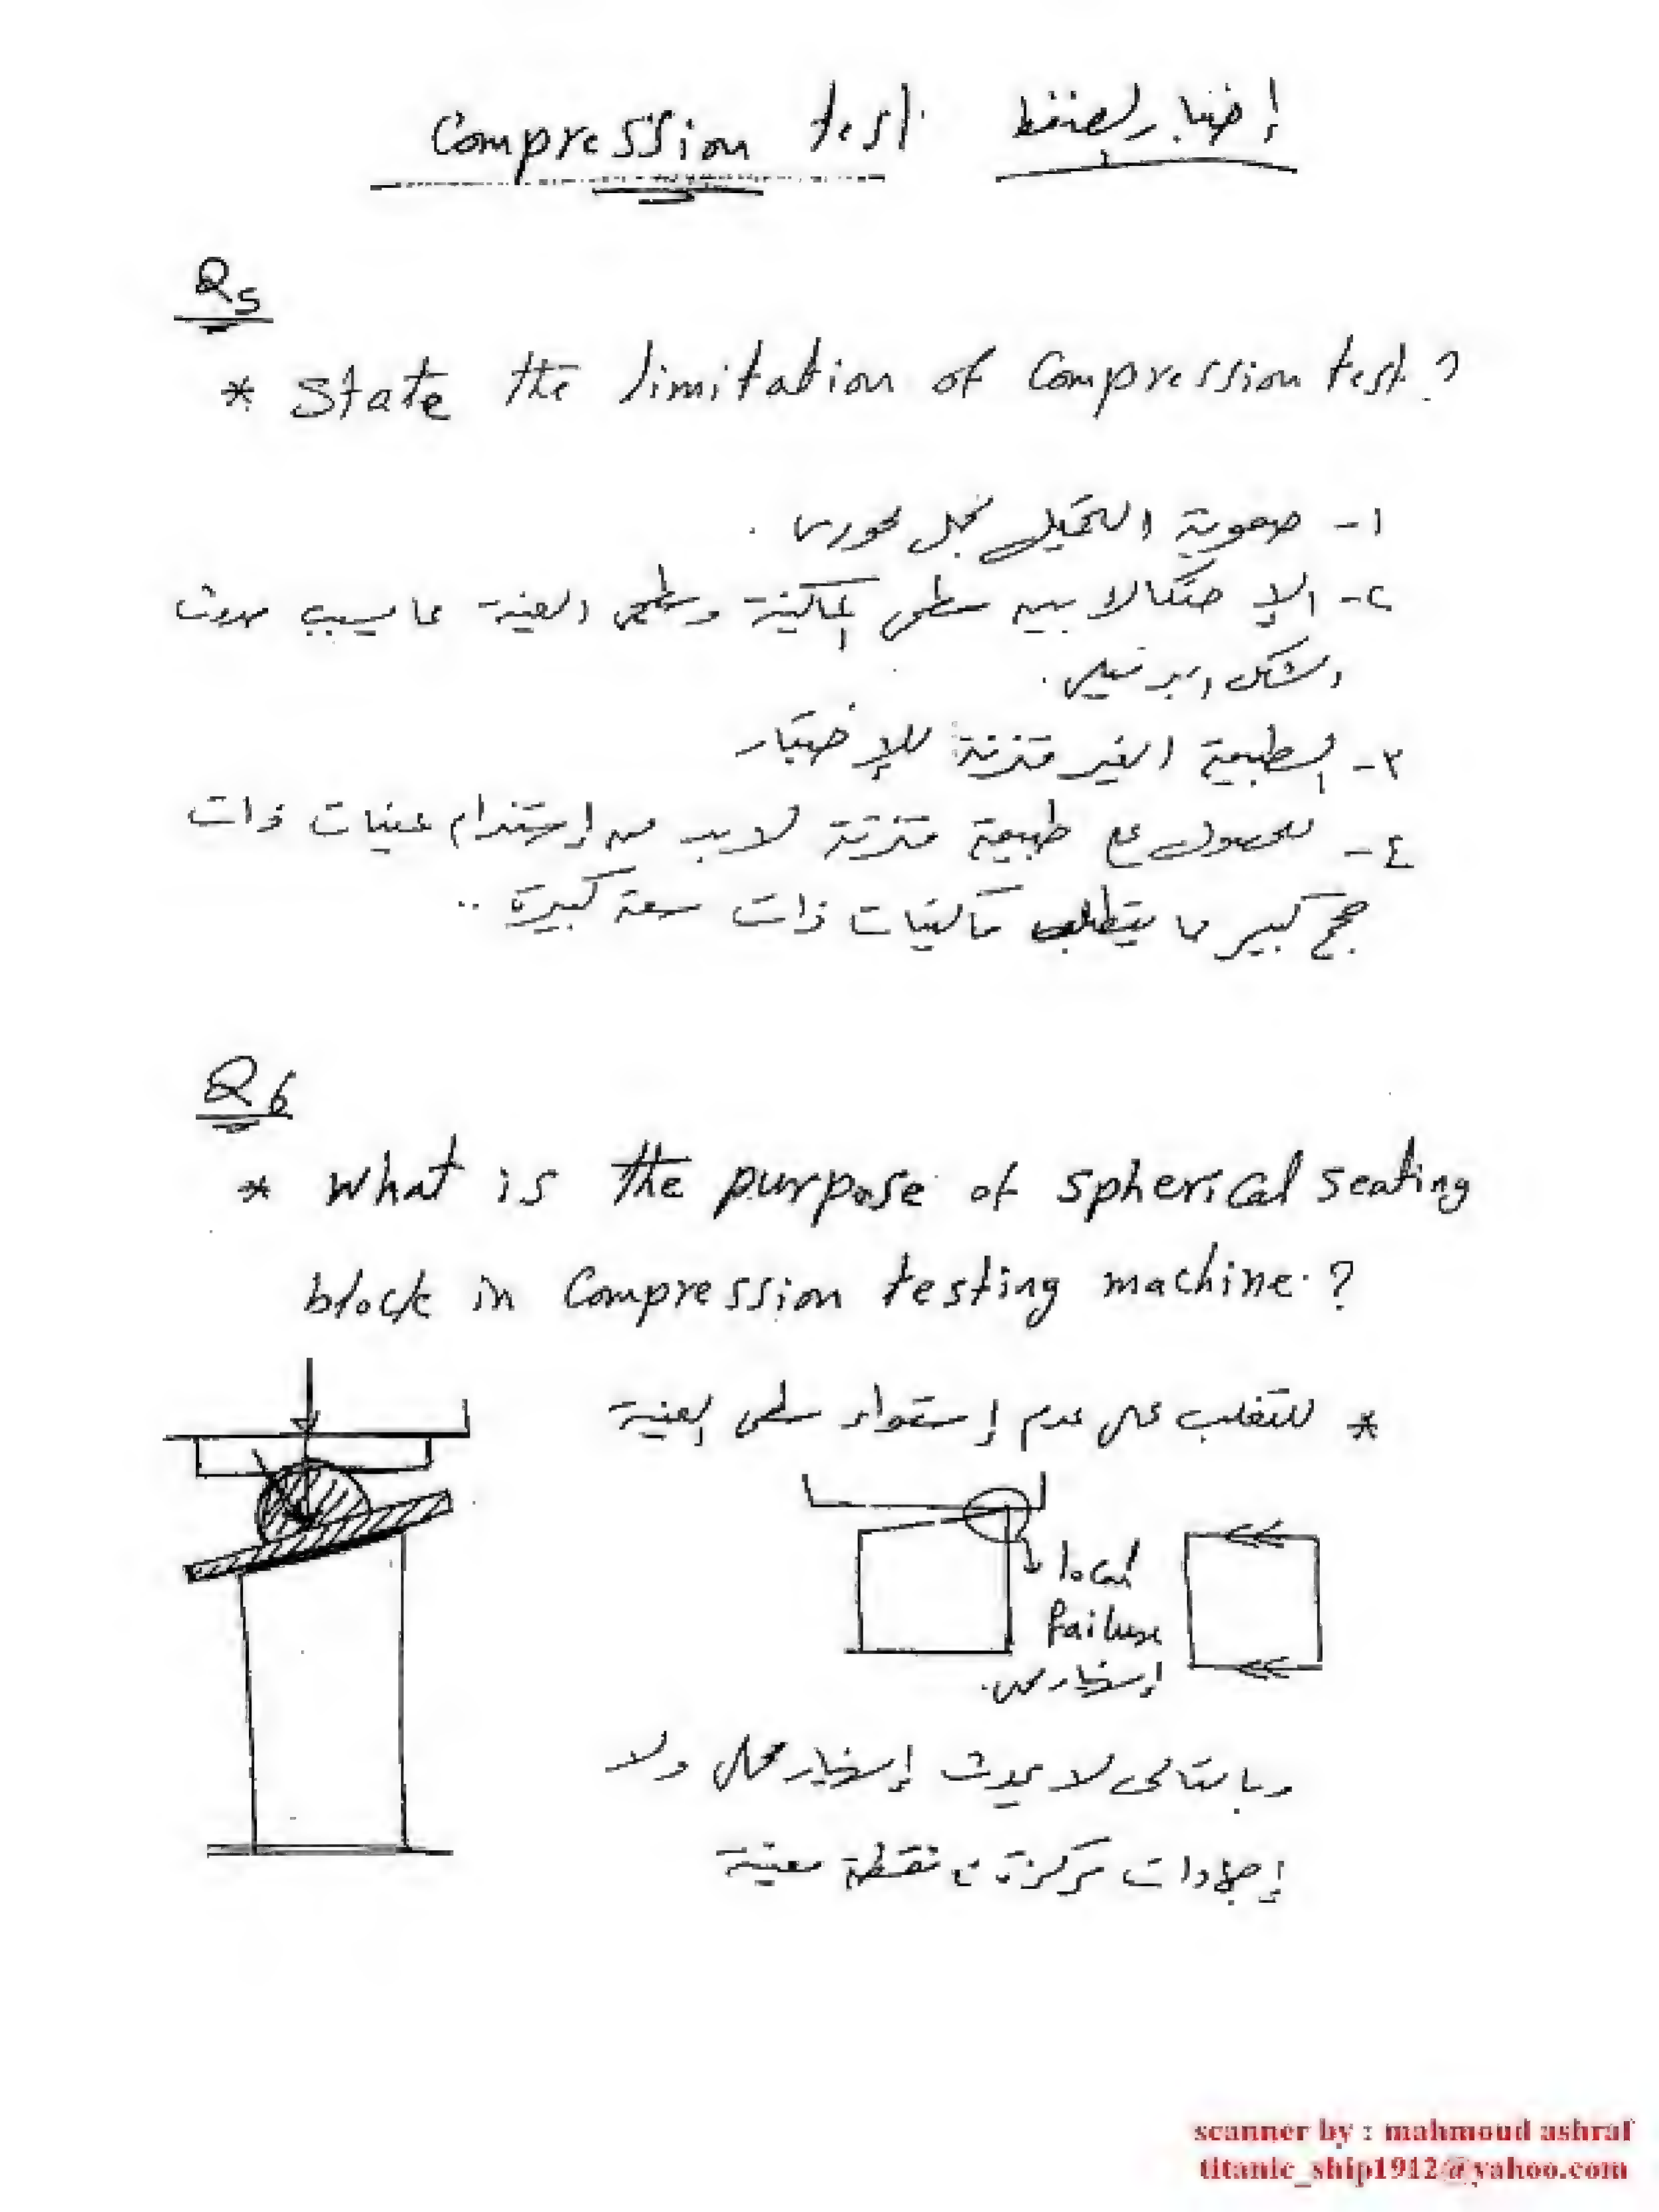 Compression test إختبار الضغط
Q5
* State the limitation of Compression test ?
١- صعوبة التحميل بحمل محورى .
٢- الإحتكاك بين سطحى الماكينة وسطحى العينة مما يسبب حدوث
الشكل البرميلى .
٣- الطبيعة الغير متزنة للإختبار
٤- للحصول على طبيعة متزنة لابد من إستخدام عينات ذات
حجم كبير مما يتطلب ماكينات ذات سعة كبيرة ..
Q6
* What is the purpose of spherical seating
block in Compression testing machine ?
* للتغلب على عدم إستواء سطحى العينة
local
failure
إنهيار محلى .
وبالتالى لا يحدث إنهيار محلى ولا
إجهادات مركزة فى نقطة معينة
scanner by : mahmoud ashraf
titanic_ship1912@yahoo.com